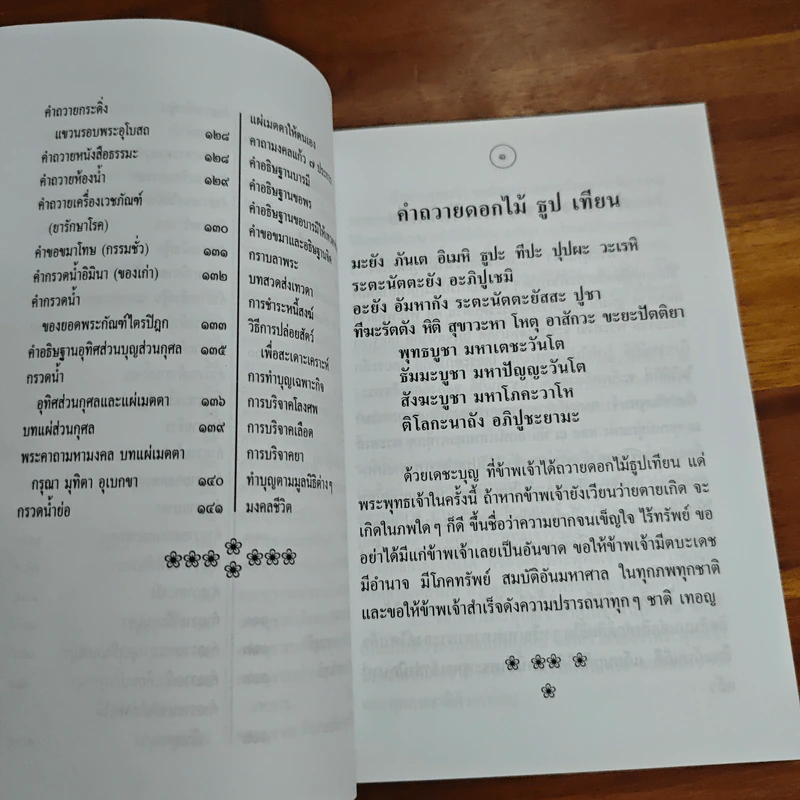 คำถวายกระดิ่ง
แขวนรอบพระอุโบสถ ๑๒๘
คำถวายหนังสือธรรมะ ๑๒๘
คำถวายห้องน้ำ ๑๒๙
คำถวายเครื่องเวชภัณฑ์
(ยารักษาโรค) ๑๓๐
คำขอขมาโทษ (กรรมชั่ว) ๑๓๑
คำกรวดน้ำอิมินา (ของเก่า) ๑๓๒
คำกรวดน้ำ
ของยอดพระกัณฑ์ไตรปิฎก ๑๓๓
คำอธิษฐานอุทิศส่วนบุญส่วนกุศล ๑๓๕
กรวดน้ำ
อุทิศส่วนกุศลและแผ่เมตตา ๑๓๖
บทแผ่ส่วนกุศล ๑๓๙
พระคาถามหามงคล บทแผ่เมตตา
กรุณา มุทิตา อุเบกขา ๑๔๐
กรวดน้ำย่อ ๑๔๑
แผ่เมตตาให้ตนเอง
คาถามงคลแก้ว ๗ ประการ
คำอธิษฐานบารมี
คำอธิษฐานขอพร
คำอธิษฐานขอบารมี
คำขอขมาและอธิษฐานจิต
กราบลาพระ
บทสวดส่งเทวดา
การชำระหนี้สงฆ์
วิธีการปล่อยสัตว์
เพื่อสะเดาะเคราะห์
การทำบุญเฉพาะกิจ
การบริจาคโลงศพ
การบริจาคเลือด
การบริจาคยา
ทำบุญตามมูลนิธิต่างๆ
มงคลชีวิต
๑
คำถวายดอกไม้ ธูป เทียน
มะยัง ภันเต อิเมหิ ธูปะ ทีปะ ปุปผะ วะเรหิ
ระตะนัตตะยัง อะภิปูเชมิ
อะยัง อัมหากัง ระตะนัตตะยัสสะ ปูชา
ทีฆะรัตตัง หิติ สุขาวะหา โหตุ อาสักวะ ขะยะปัตติยา
พุทธบูชา มหาเตชะวันโต
ธัมมะบูชา มหาปัญญะวันโต
สังฆะบูชา มหาโภคะวาโห
ติโลกะนาถัง อภิปูชะยามะ
ด้วยเดชะบุญ ที่ข้าพเจ้าได้ถวายดอกไม้ธูปเทียน แด่
พระพุทธเจ้าในครั้งนี้ ถ้าหากข้าพเจ้ายังเวียนว่ายตายเกิด จะ
เกิดในภพใดๆ ก็ดี ขึ้นชื่อว่าความยากจนเข็ญใจ ไร้ทรัพย์ ขอ
อย่าได้มีแก่ข้าพเจ้าเลยเป็นอันขาด ขอให้ข้าพเจ้ามีตบะเดช
มีอำนาจ มีโภคทรัพย์ สมบัติอันมหาศาล ในทุกภพทุกชาติ
และขอให้ข้าพเจ้าสำเร็จดังความปรารถนาทุกๆ ชาติ เทอญ